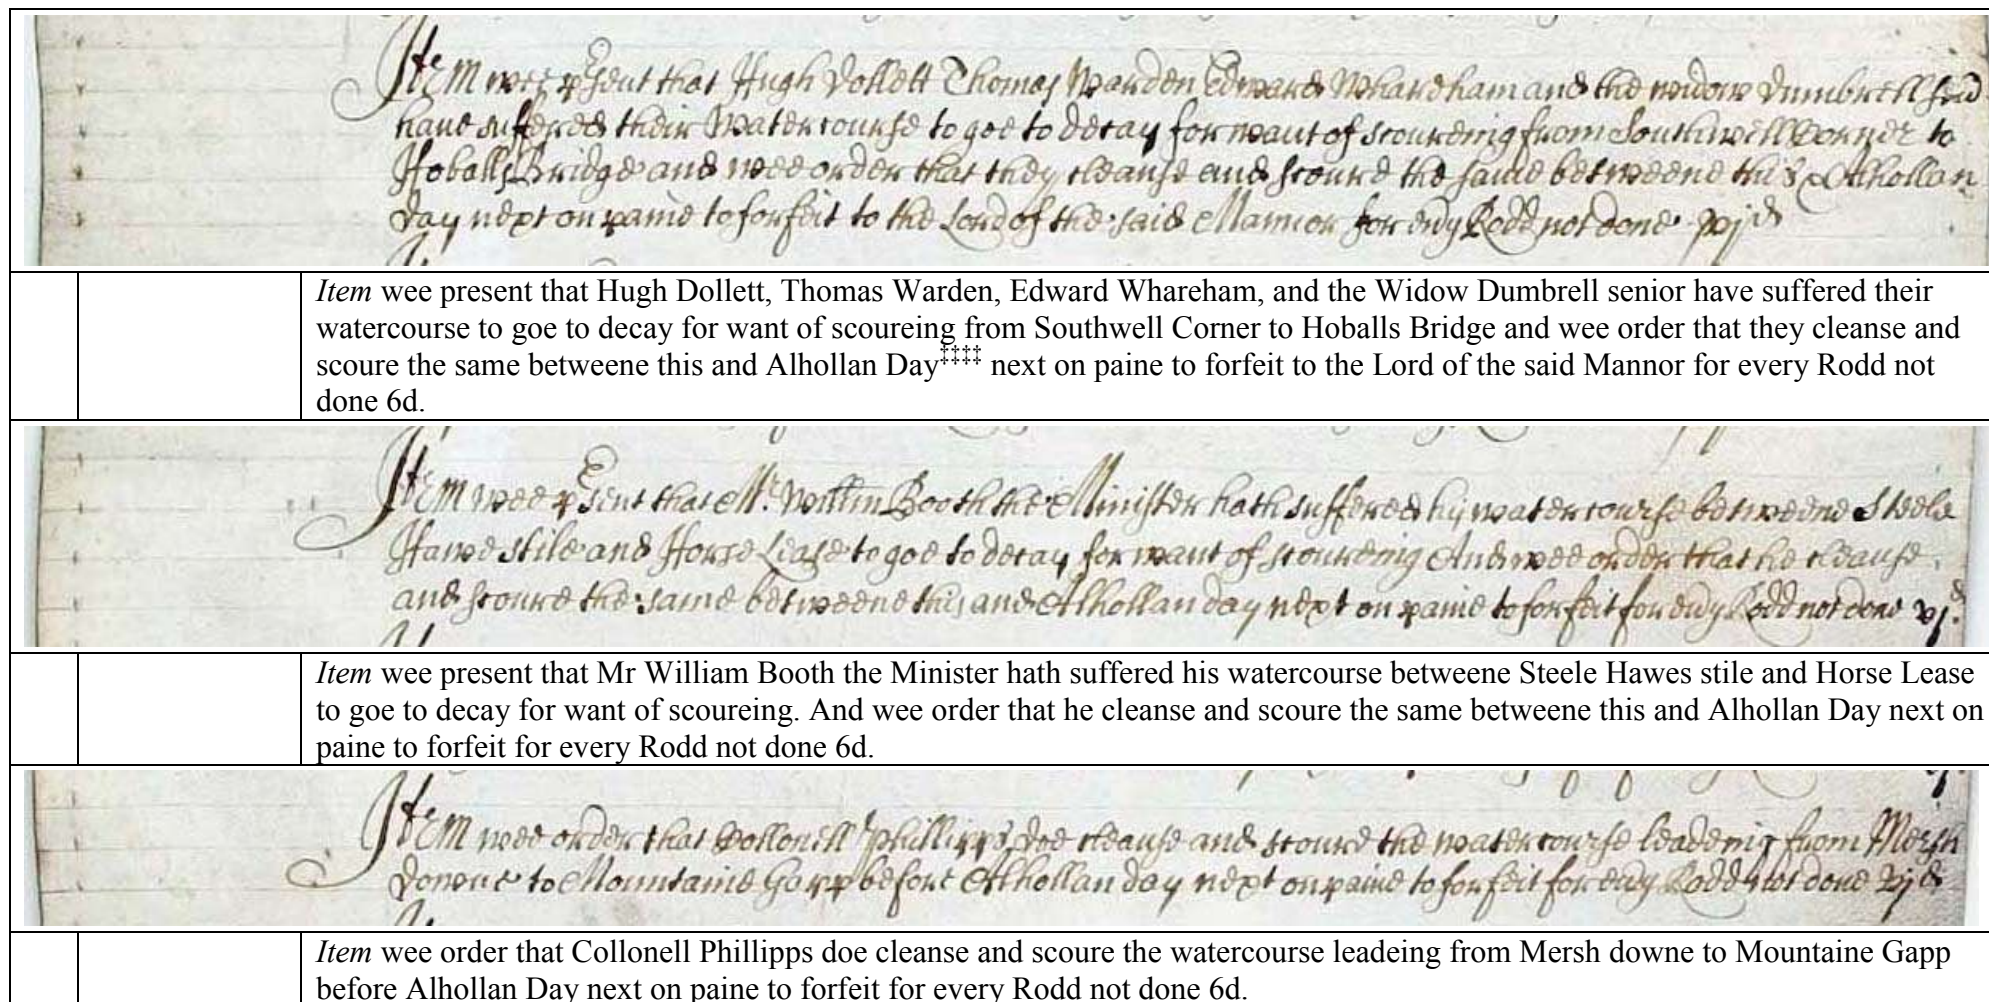 Item wee p'sent that Hugh Dollett Thomas Warden Edward Whareham and the widow Dumbrell sen'
have suffered their Watercourse to goe to decay for want of scoureing from Southwell Corner to
Hoballs Bridge and wee order that they cleanse and scoure the same betweene this & Alhollan
day next on paine to forfeit to the Lord of the said Mannor for ev'y Rodd not done vjd
Item wee present that Hugh Dollett, Thomas Warden, Edward Whareham, and the Widow Dumbrell senior have suffered their
watercourse to goe to decay for want of scoureing from Southwell Corner to Hoballs Bridge and wee order that they cleanse and
scoure the same betweene this and Alhollan Day‡‡‡‡ next on paine to forfeit to the Lord of the said Mannor for every Rodd not
done 6d.
Item wee p'sent that Mr. Willm Booth the Minister hath suffered his watercourse betweene Steele
Hawe stile and Horse Lease to goe to decay for want of scoureing And wee order that he cleanse
and scoure the same betweene this and Alhollan day next on paine to forfeit for ev'y Rodd not done vjd
Item wee present that Mr William Booth the Minister hath suffered his watercourse betweene Steele Hawes stile and Horse Lease
to goe to decay for want of scoureing. And wee order that he cleanse and scoure the same betweene this and Alhollan Day next on
paine to forfeit for every Rodd not done 6d.
Item wee order that Collonell Phillipps doe cleanse and scoure the watercourse leadeing from Mersh
downe to Mountaine Gapp before Alhollan day next on paine to forfeit for ev'y Rodd not done vjd
Item wee order that Collonell Phillipps doe cleanse and scoure the watercourse leadeing from Mersh downe to Mountaine Gapp
before Alhollan Day next on paine to forfeit for every Rodd not done 6d.